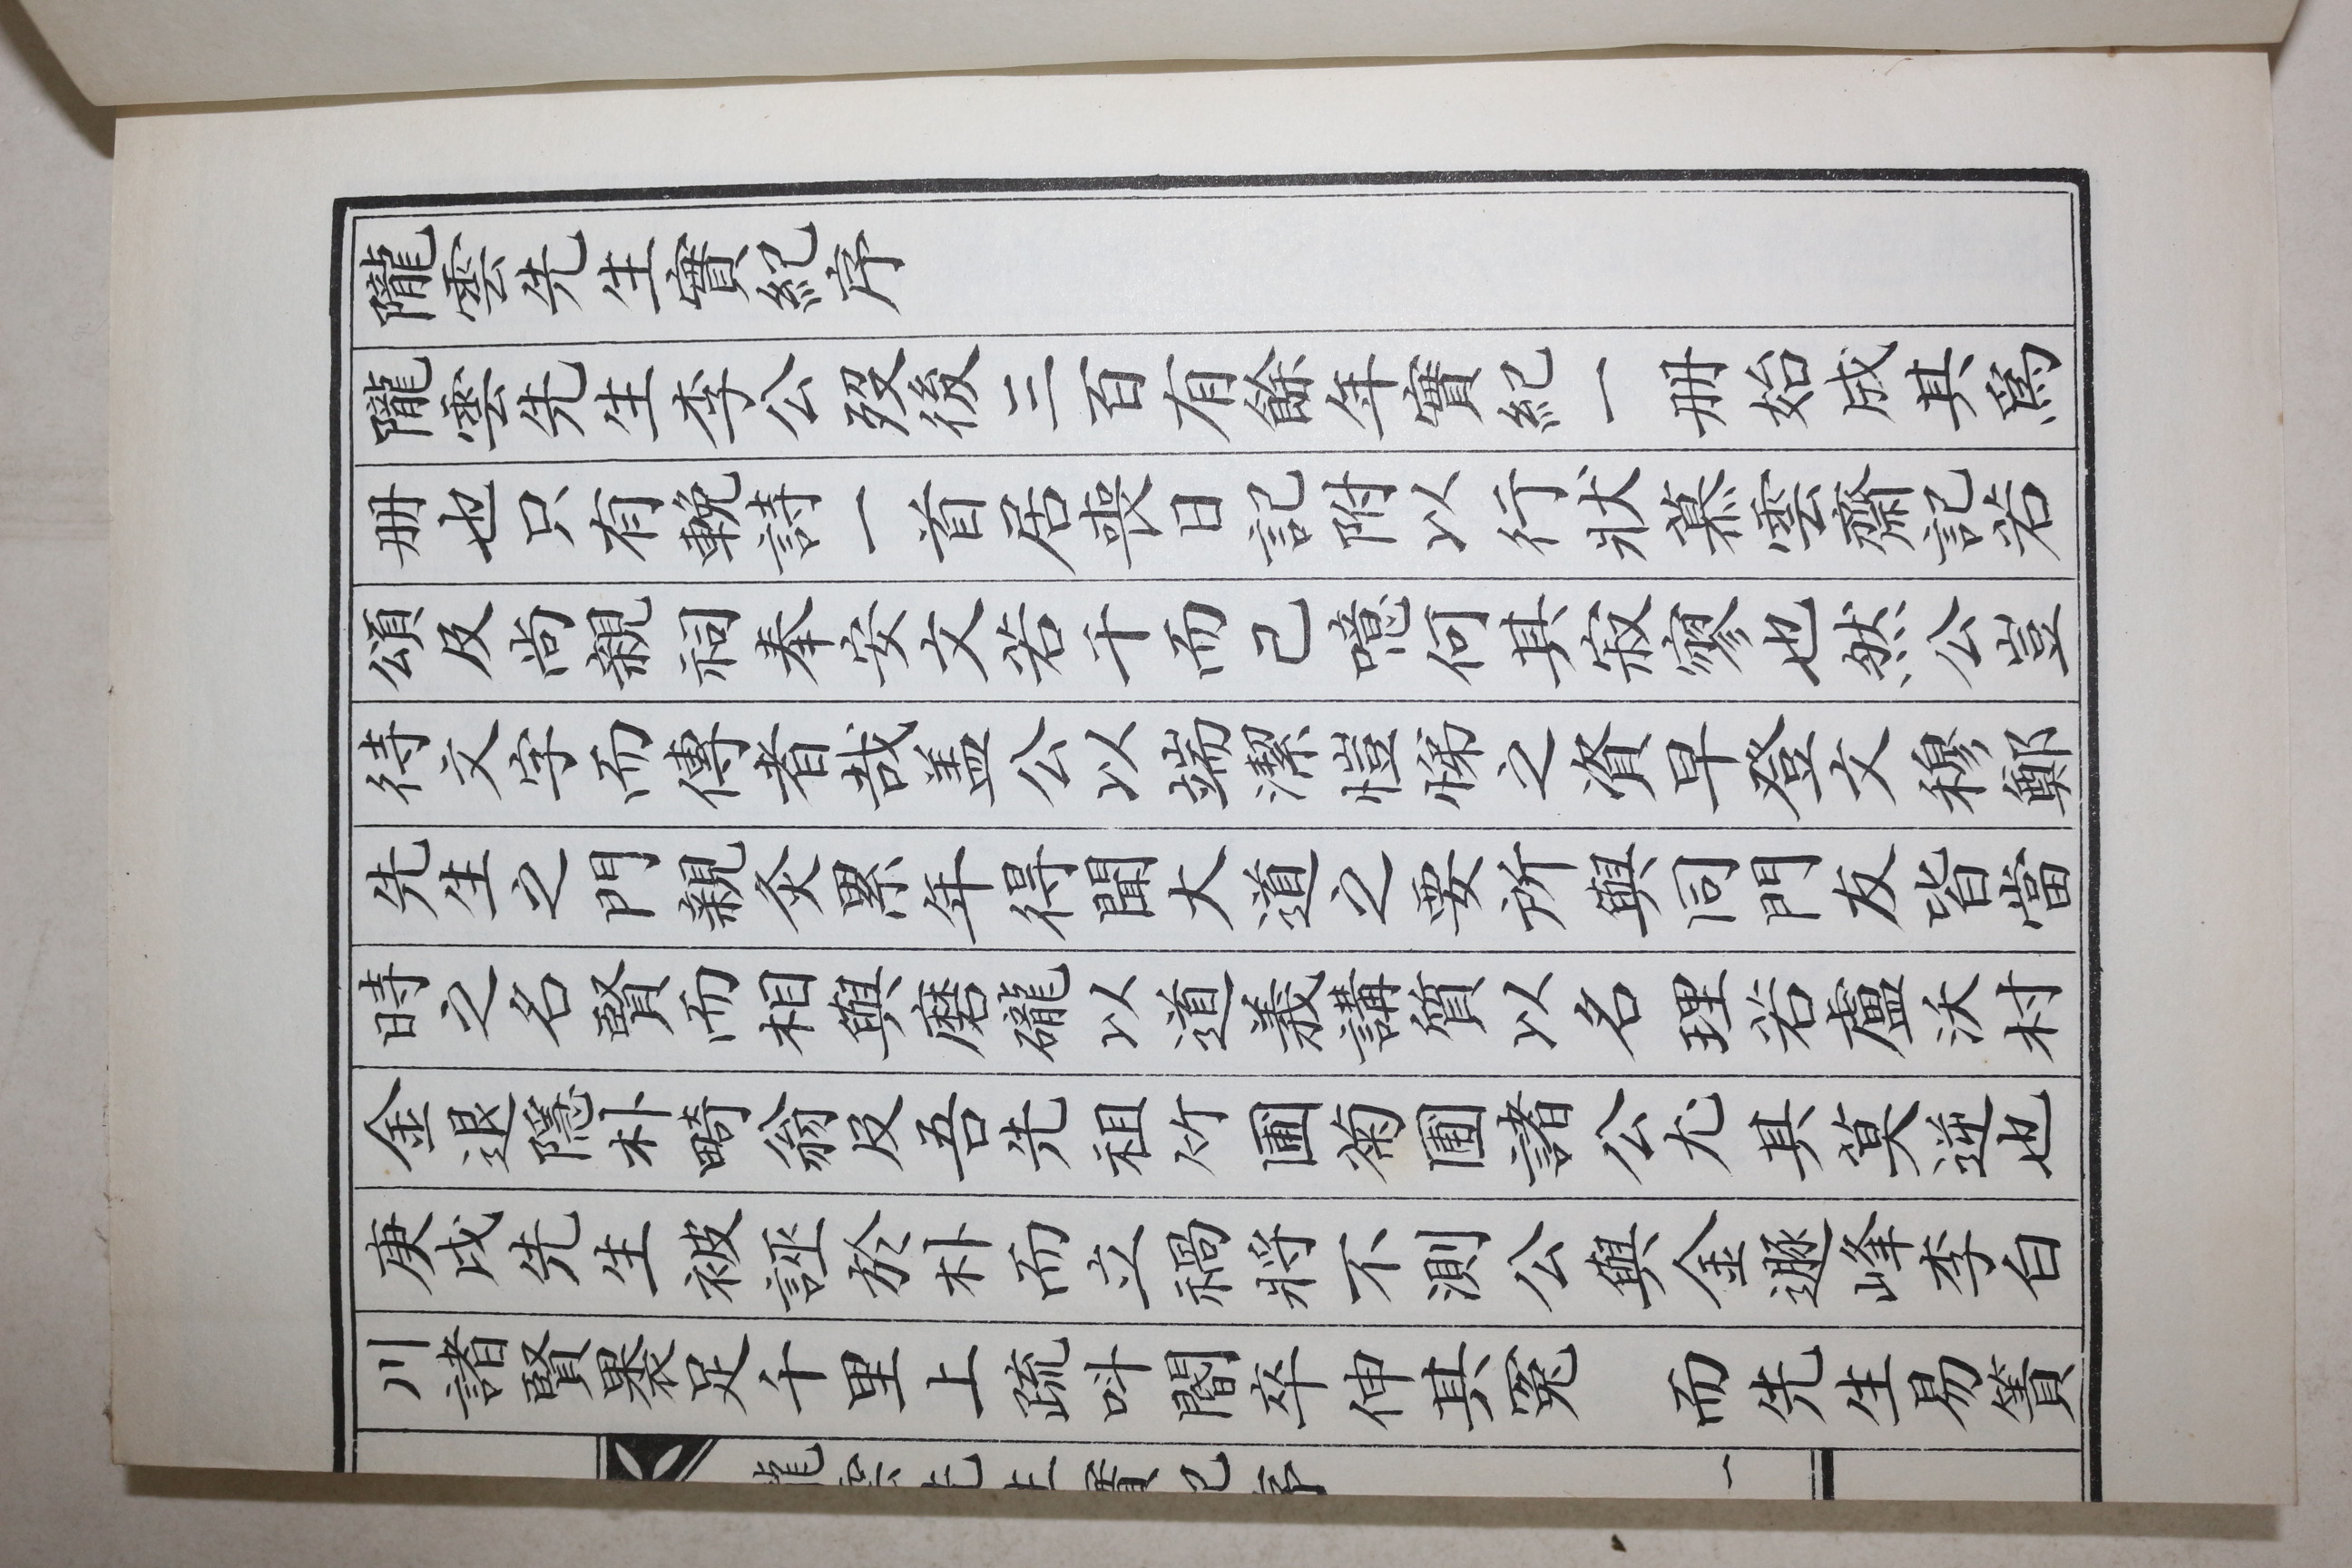 隴雲先生實紀序
隴雲先生李公歿後三百有餘年實紀一册始成其爲
册也只有輓詩一首居喪日記附以行狀慕雲齋記若
頌及尚親祠奉安文若干而己噫何其寂寥也然公豈
待文字而傳者哉盖公以端潔愷悌之資早登文穆鄭
先生之門親炙累年得聞大道之要所與同門友皆當
時之名賢而相與磨礲以道義講質以名理若盧沃村
金退隱朴畸翁及吾先祖竹圃菊圃諸公尤其莫逆也
庚戌先生被誣於朴而立禍將不測公與金遯峰李白
川諸賢裹足千里上疏呌閽卒伸其冤　而先生易簀
隴雲先生實紀序　一